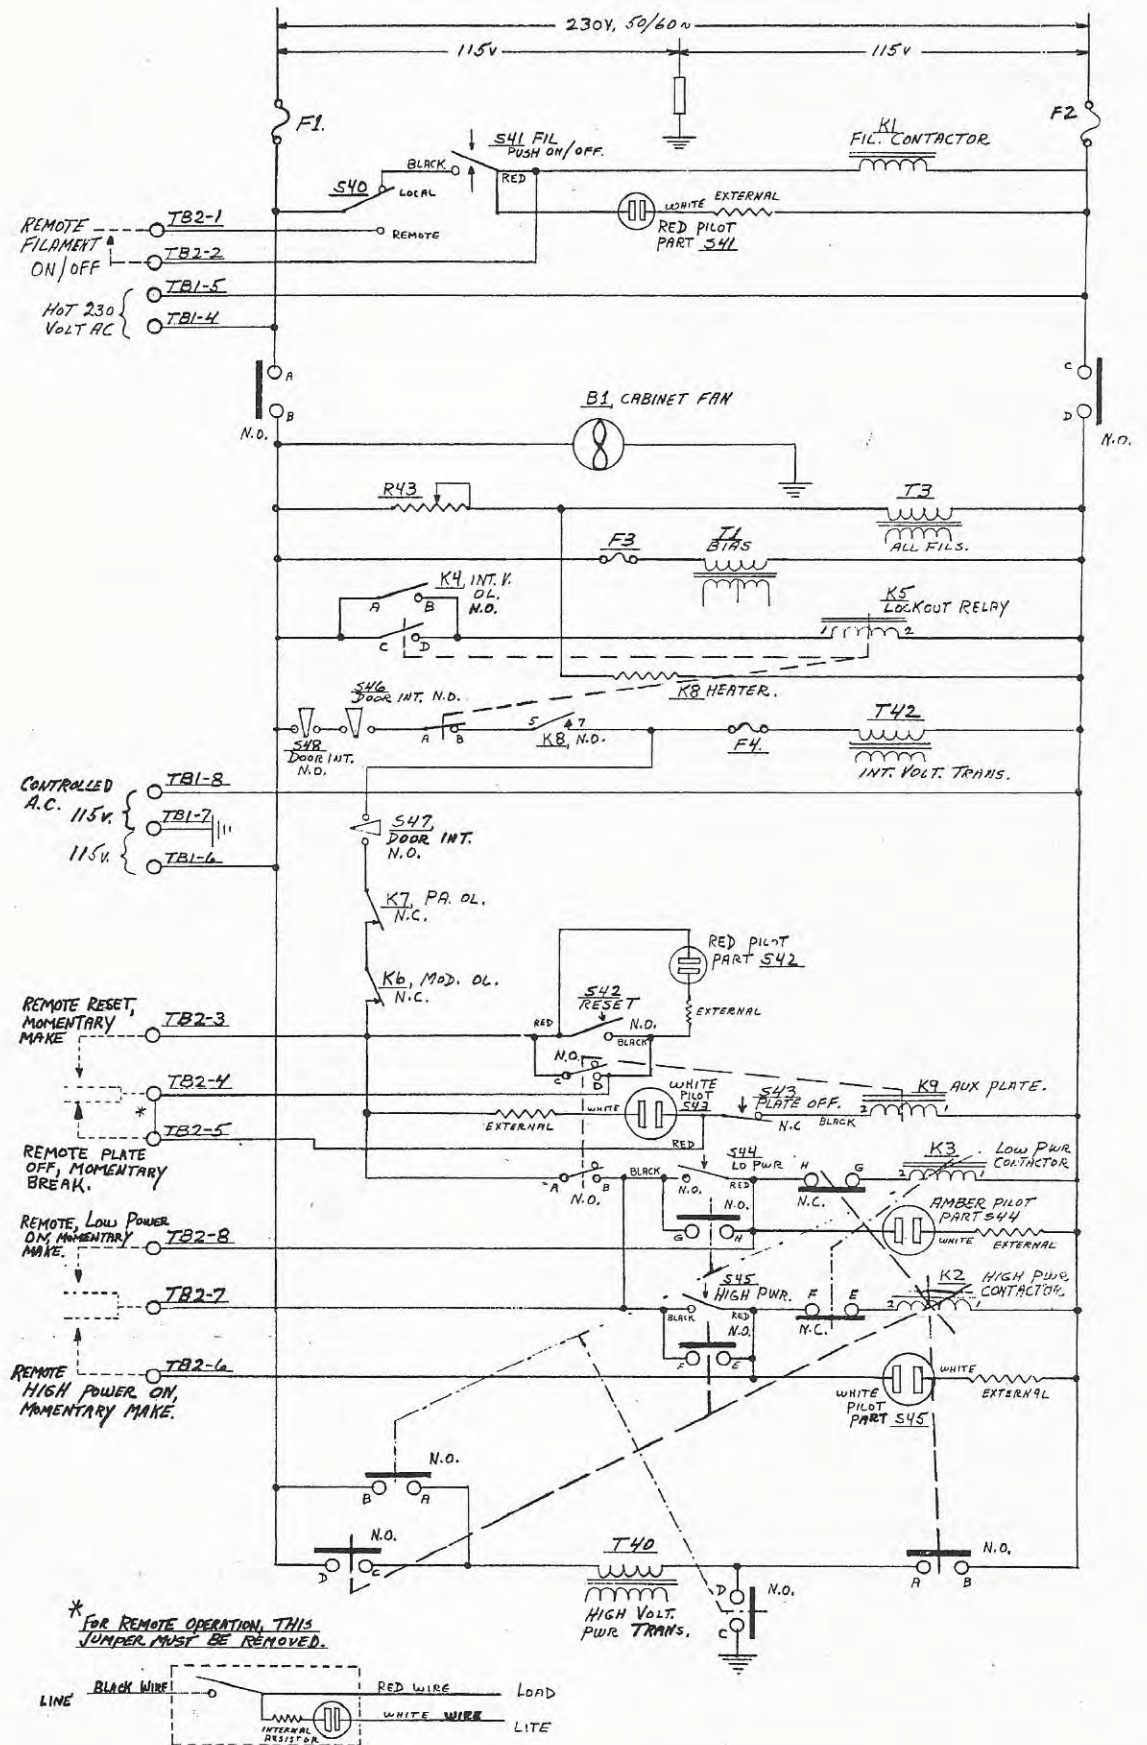 230V, 50/60~
115V
115V
F1.
F2
S41 FIL
PUSH ON/OFF.
K1
FIL. CONTACTOR
BLACK
RED
S40
LOCAL
REMOTE
WHITE EXTERNAL
RED PILOT
PART S41
REMOTE
FILAMENT
ON/OFF
TB2-1
TB2-2
HOT 230
VOLT AC
TB1-5
TB1-4
A
B
N.O.
C
D
N.O.
B1, CABINET FAN
R43
T3
ALL FILS.
F3
T1
BIAS
K4, INT. V.
OL.
N.O.
A
B
C
D
K5
LOCKOUT RELAY
1
2
K8 HEATER.
S46
DOOR INT. N.O.
S48
DOOR INT.
N.O.
A
B
5
7
K8, N.O.
F4.
T42
INT. VOLT. TRANS.
CONTROLLED
A.C.
115V.
115V.
TB1-8
TB1-7
TB1-6
S47,
DOOR INT.
N.O.
K7, PA. OL.
N.C.
K6, MOD. OL.
N.C.
RED PILOT
PART S42
EXTERNAL
S42
RESET
RED
N.O.
BLACK
N.O.
C
D
REMOTE RESET,
MOMENTARY
MAKE
TB2-3
TB2-4
*
TB2-5
REMOTE PLATE
OFF, MOMENTARY
BREAK.
EXTERNAL
WHITE
WHITE
PILOT
S43
RED
S43
PLATE OFF.
N.C
BLACK
K9 AUX PLATE.
2
1
A
B
N.O.
BLACK
S44
LO PWR
N.O.
RED
N.O.
G
H
H
G
N.C.
K3
LOW PWR
CONTACTOR
2
1
AMBER PILOT
PART S44
WHITE
EXTERNAL
REMOTE, LOW POWER
ON, MOMENTARY
MAKE.
TB2-8
TB2-7
TB2-6
REMOTE
HIGH POWER ON,
MOMENTARY MAKE.
S45
HIGH PWR.
BLACK
RED
N.O.
F
E
F
E
N.C.
K2
HIGH PWR
CONTACTOR
2
1
WHITE
PILOT
PART S45
WHITE
EXTERNAL
N.O.
B
A
N.O.
D
C
T40
HIGH VOLT.
PWR TRANS.
D
C
N.O.
N.O.
A
B
*
FOR REMOTE OPERATION, THIS
JUMPER MUST BE REMOVED.
LINE
BLACK WIRE
RED WIRE
LOAD
INTERNAL
RESISTOR
WHITE WIRE
LITE